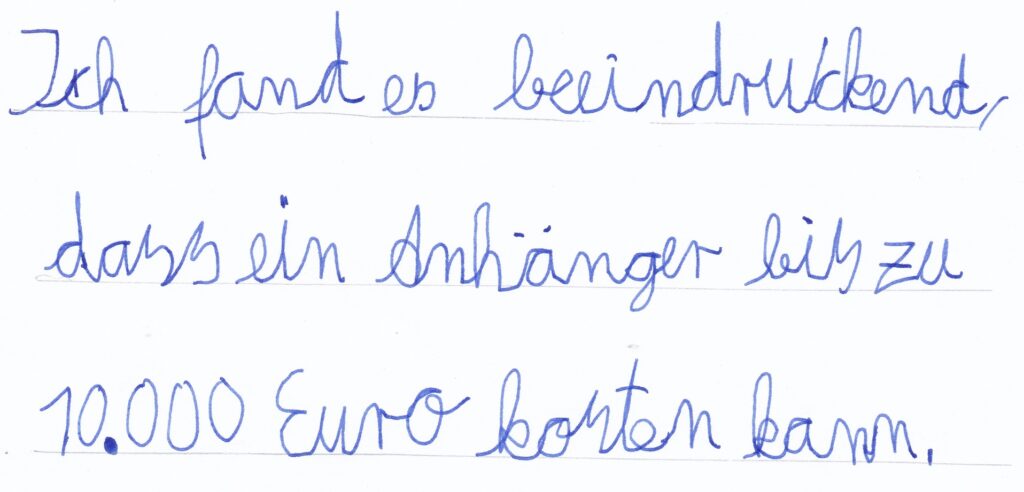 Ich fand es beeindruckend,
dass ein Anhänger bis zu
10.000 Euro kosten kann.